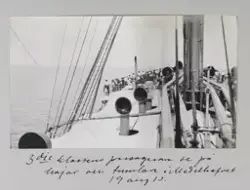 3dje klassens passagerare se på
hajar och tumlare i Medelhafvet
19 aug 12.